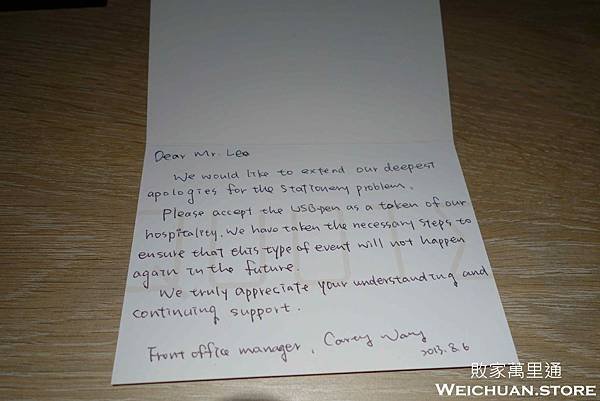 Dear Mr. Lee
We would like to extend our deepest
apologies for the stationery problem.
Please accept the USB pen as a token of our
hospitality. We have taken the necessary steps to
ensure that this type of event will not happen
again in the future.
We truly appreciate your understanding and
continuing support.
Front office manager, Carey Wang
2013.8.6
敗家萬里通
WEICHUAN.STORE